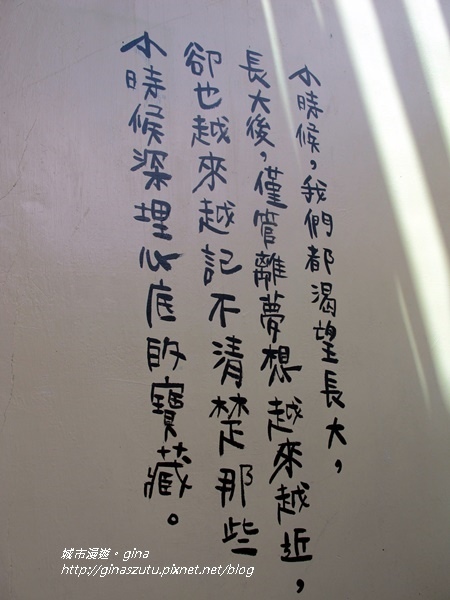 小時候，我們都渴望長大，
長大後，僅管離夢想越來越近，
卻也越來越記不清楚那些
小時候深埋心底的寶藏。
城市漫遊。gina
http://ginaszutu.pixnet.net/blog